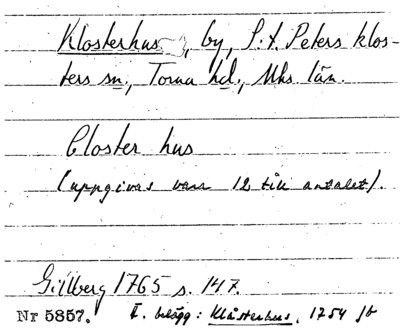 Klosterhus, by, S:t Peters klos-
ters sn, Torna hd., Mhs län.
Closter hus
(uppgivas vara 12 till antalet).
Gillberg 1765 s. 147.
Nr 5857. I. belägg: Klåsterhus, 1754 jb